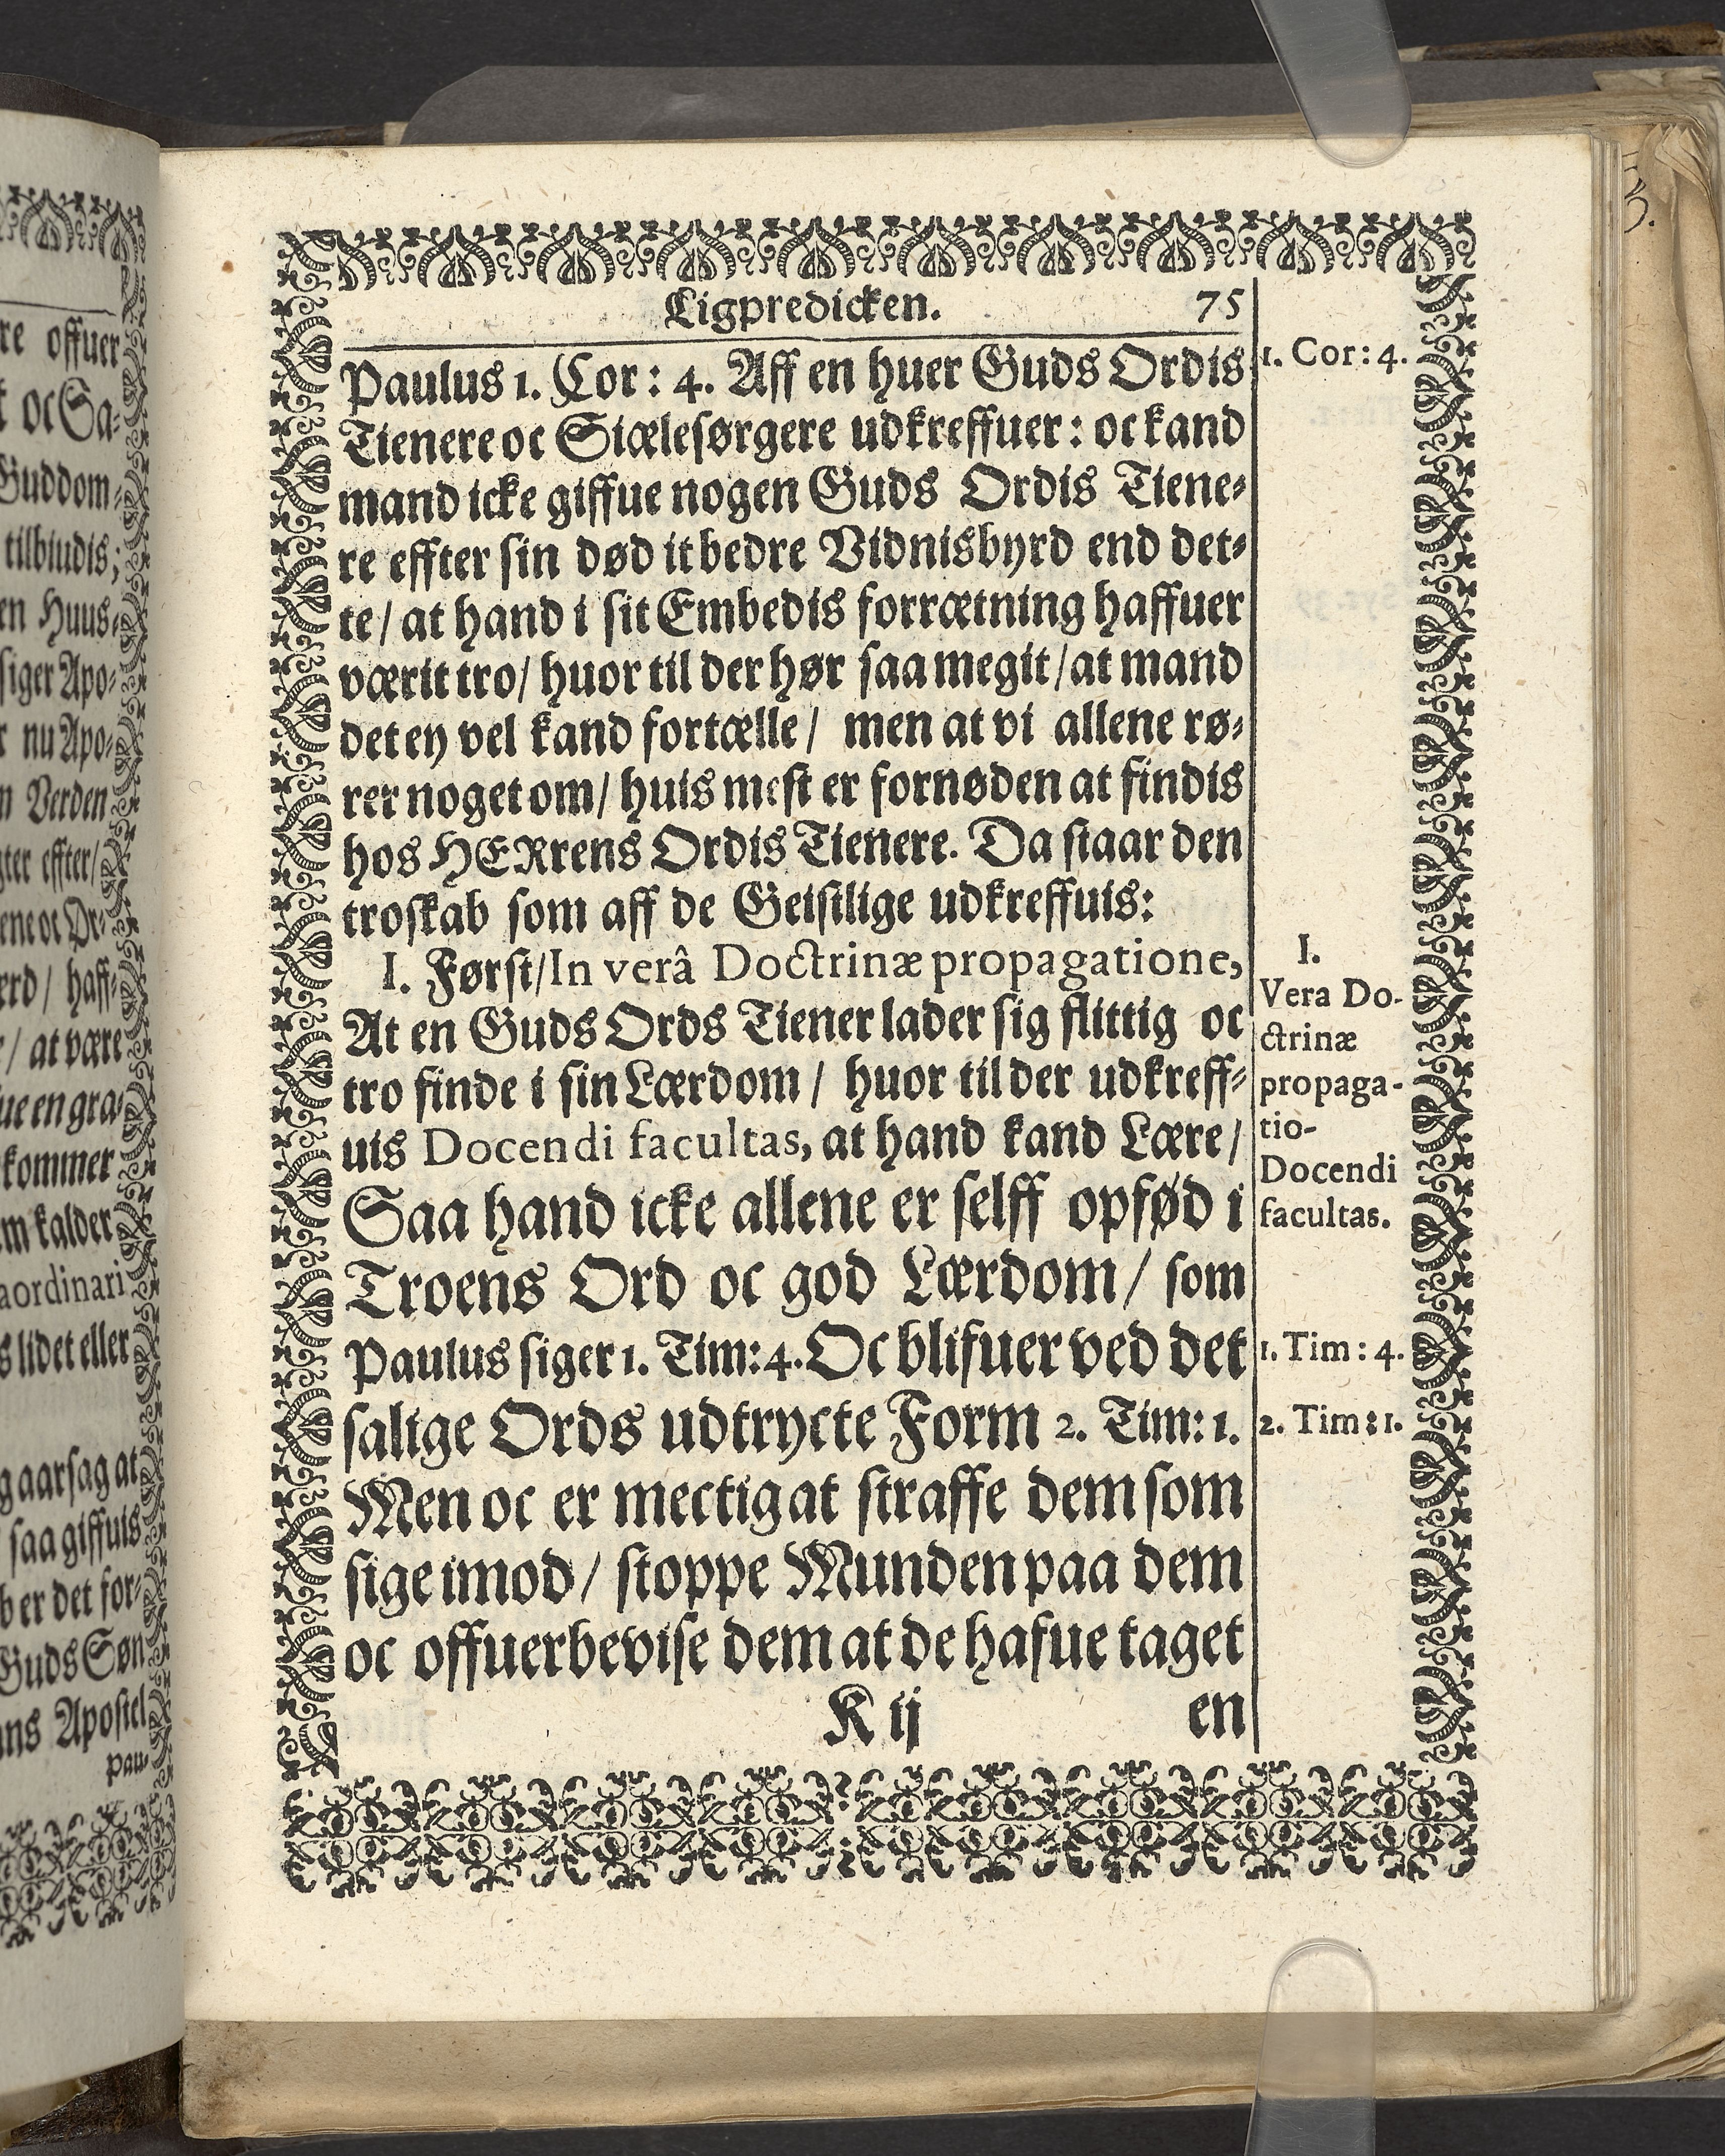 re offuer
t oc Sa-
Guddom
tilbiudis;
en Huus
siger Apo-
r nu Apo-
n Verden
gter effter/
ene oc Or-
erd / haff-
/ at være
ue en gra-
kommer
m kalder
aordinari
s lidet eller
g aarsag at
saa giffuis
b er det for-
Guds Søn
ns Apostel
Pau-
Ligpredicken. 75
Paulus 1. Cor: 4. Aff en huer Guds Ordis
Tienere oc Siælesørgere udkreffuer: oc kand
mand icke giffue nogen Guds Ordis Tiene-
re effter sin død it bedre Vidnisbyrd end det-
te/ at hand i sit Embedis forrætning haffuer
værit tro/ huor til der hør saa megit/ at mand
det ey vel kand fortælle/ men at vi allene rø-
rer noget om/ huis mest er fornøden at findis
hos HERrens Ordis Tienere. Da staar den
troskab som aff de Geistlige udkreffuis:
I. Først/ In verâ Doctrinæ propagatione,
At en Guds Ords Tiener lader sig flittig oc
tro finde i sin Lærdom/ huor til der udkreff-
uis Docendi facultas, at hand kand Lære/
Saa hand icke allene er selff opfød i
Troens Ord oc god Lærdom/ som
Paulus siger 1. Tim: 4. Oc blifuer ved det
salige Ords udtryckte Form 2. Tim: 1.
Men oc er mectig at straffe dem som
sige imod/ stoppe Munden paa dem
oc offuerbevise dem at de hafue taget
K ij en
1. Cor: 4.
I.
Vera Do-
ctrinæ
propaga-
tio-
Docendi
facultas.
1. Tim: 4.
2. Tim: 1.
3.